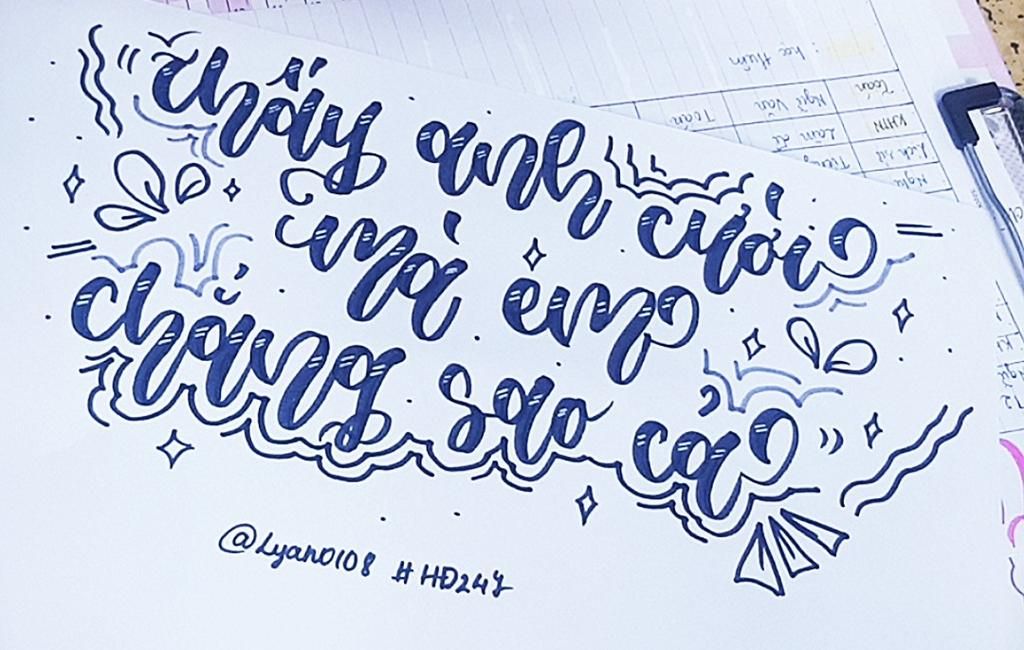 "thấy anh cười
mà em
chẳng sao cả"
@Lyano108 #HĐ24Y
: học thêm
Toán
Ngữ Văn
Toán
KHTN
Lịch sử